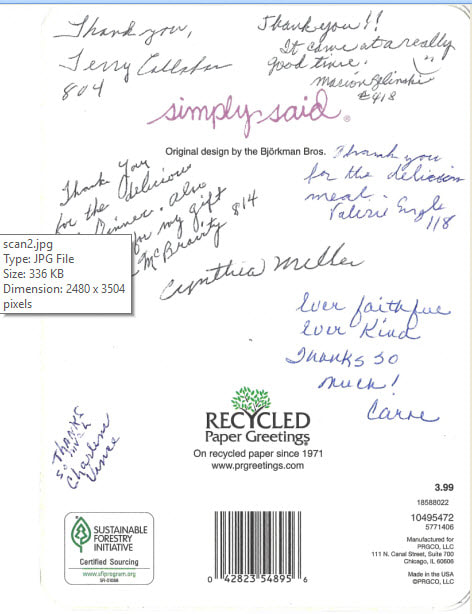 Thank you,
Terry Callahan
804
Thank you!!
It came at a really
good time.
Marion Zelinski
#418
simply said®
Original design by the Björkman Bros.
Thank you
for the delicious
meal.
Valerie
118
Thank you
for the delicious
Dinner. Also
for my gift
McBravity 814
scan2.jpg
Type: JPG File
Size: 336 KB
Dimension: 2480 x 3504
pixels
Cynthia Miller
Ever faithful
Ever Kind
Thanks so
much!
THANKS
SO MUCH
Charlene
Vance
RECYCLED
Paper Greetings
On recycled paper since 1971
www.prgreetings.com
3.99
18588022
10495472
5771406
Manufactured for
PRGCO, LLC
111 N. Canal Street, Suite 700
Chicago, IL 60606
Made in the USA
©PRGCO, LLC
SUSTAINABLE
FORESTRY
INITIATIVE
Certified Sourcing
www.sfiprogram.org
0 42823 54895 6